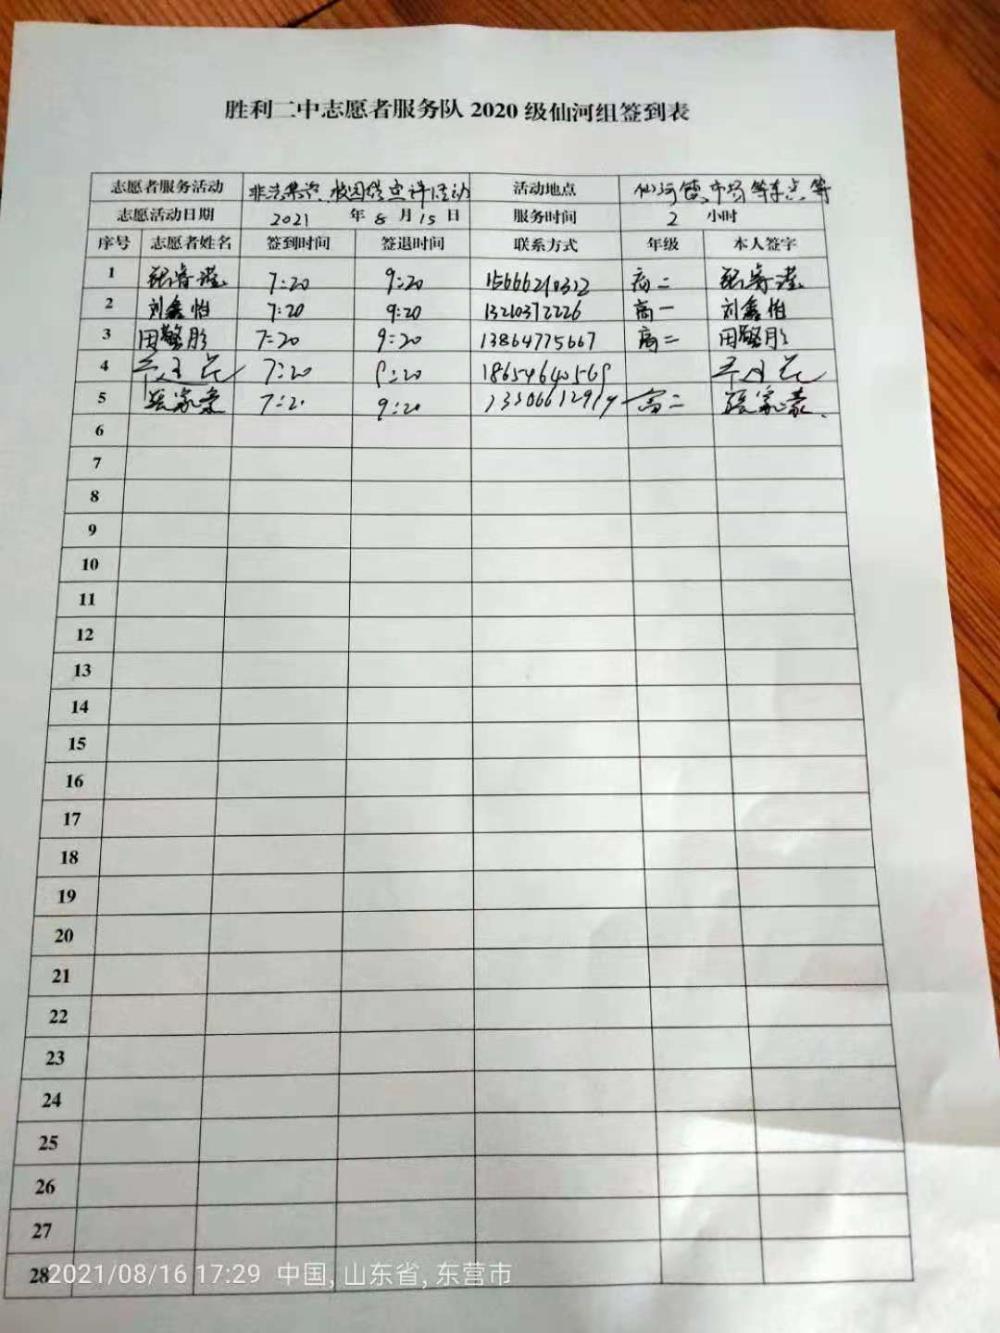 胜利二中志愿者服务队 2020 级仙河组签到表
志愿者服务活动 非法集资、校园贷宣讲活动 活动地点 仙河镇市场等车点等
志愿活动日期 2021 年 8 月 15 日 服务时间 2 小时
序号 志愿者姓名 签到时间 签退时间 联系方式 年级 本人签字
1 7:20 9:20 15666210312 高二
2 刘鑫怡 7:20 9:20 13210372226 高一 刘鑫怡
3 田 7:20 9:20 13864775667 高二 田
4 7:20 9:20 18654640569
5 张家豪 7:2 9:20 高二 张家豪
6
7
8
9
10
11
12
13
14
15
16
17
18
19
20
21
22
23
24
25
26
27
28
2021/08/16 17:29 中国, 山东省, 东营市